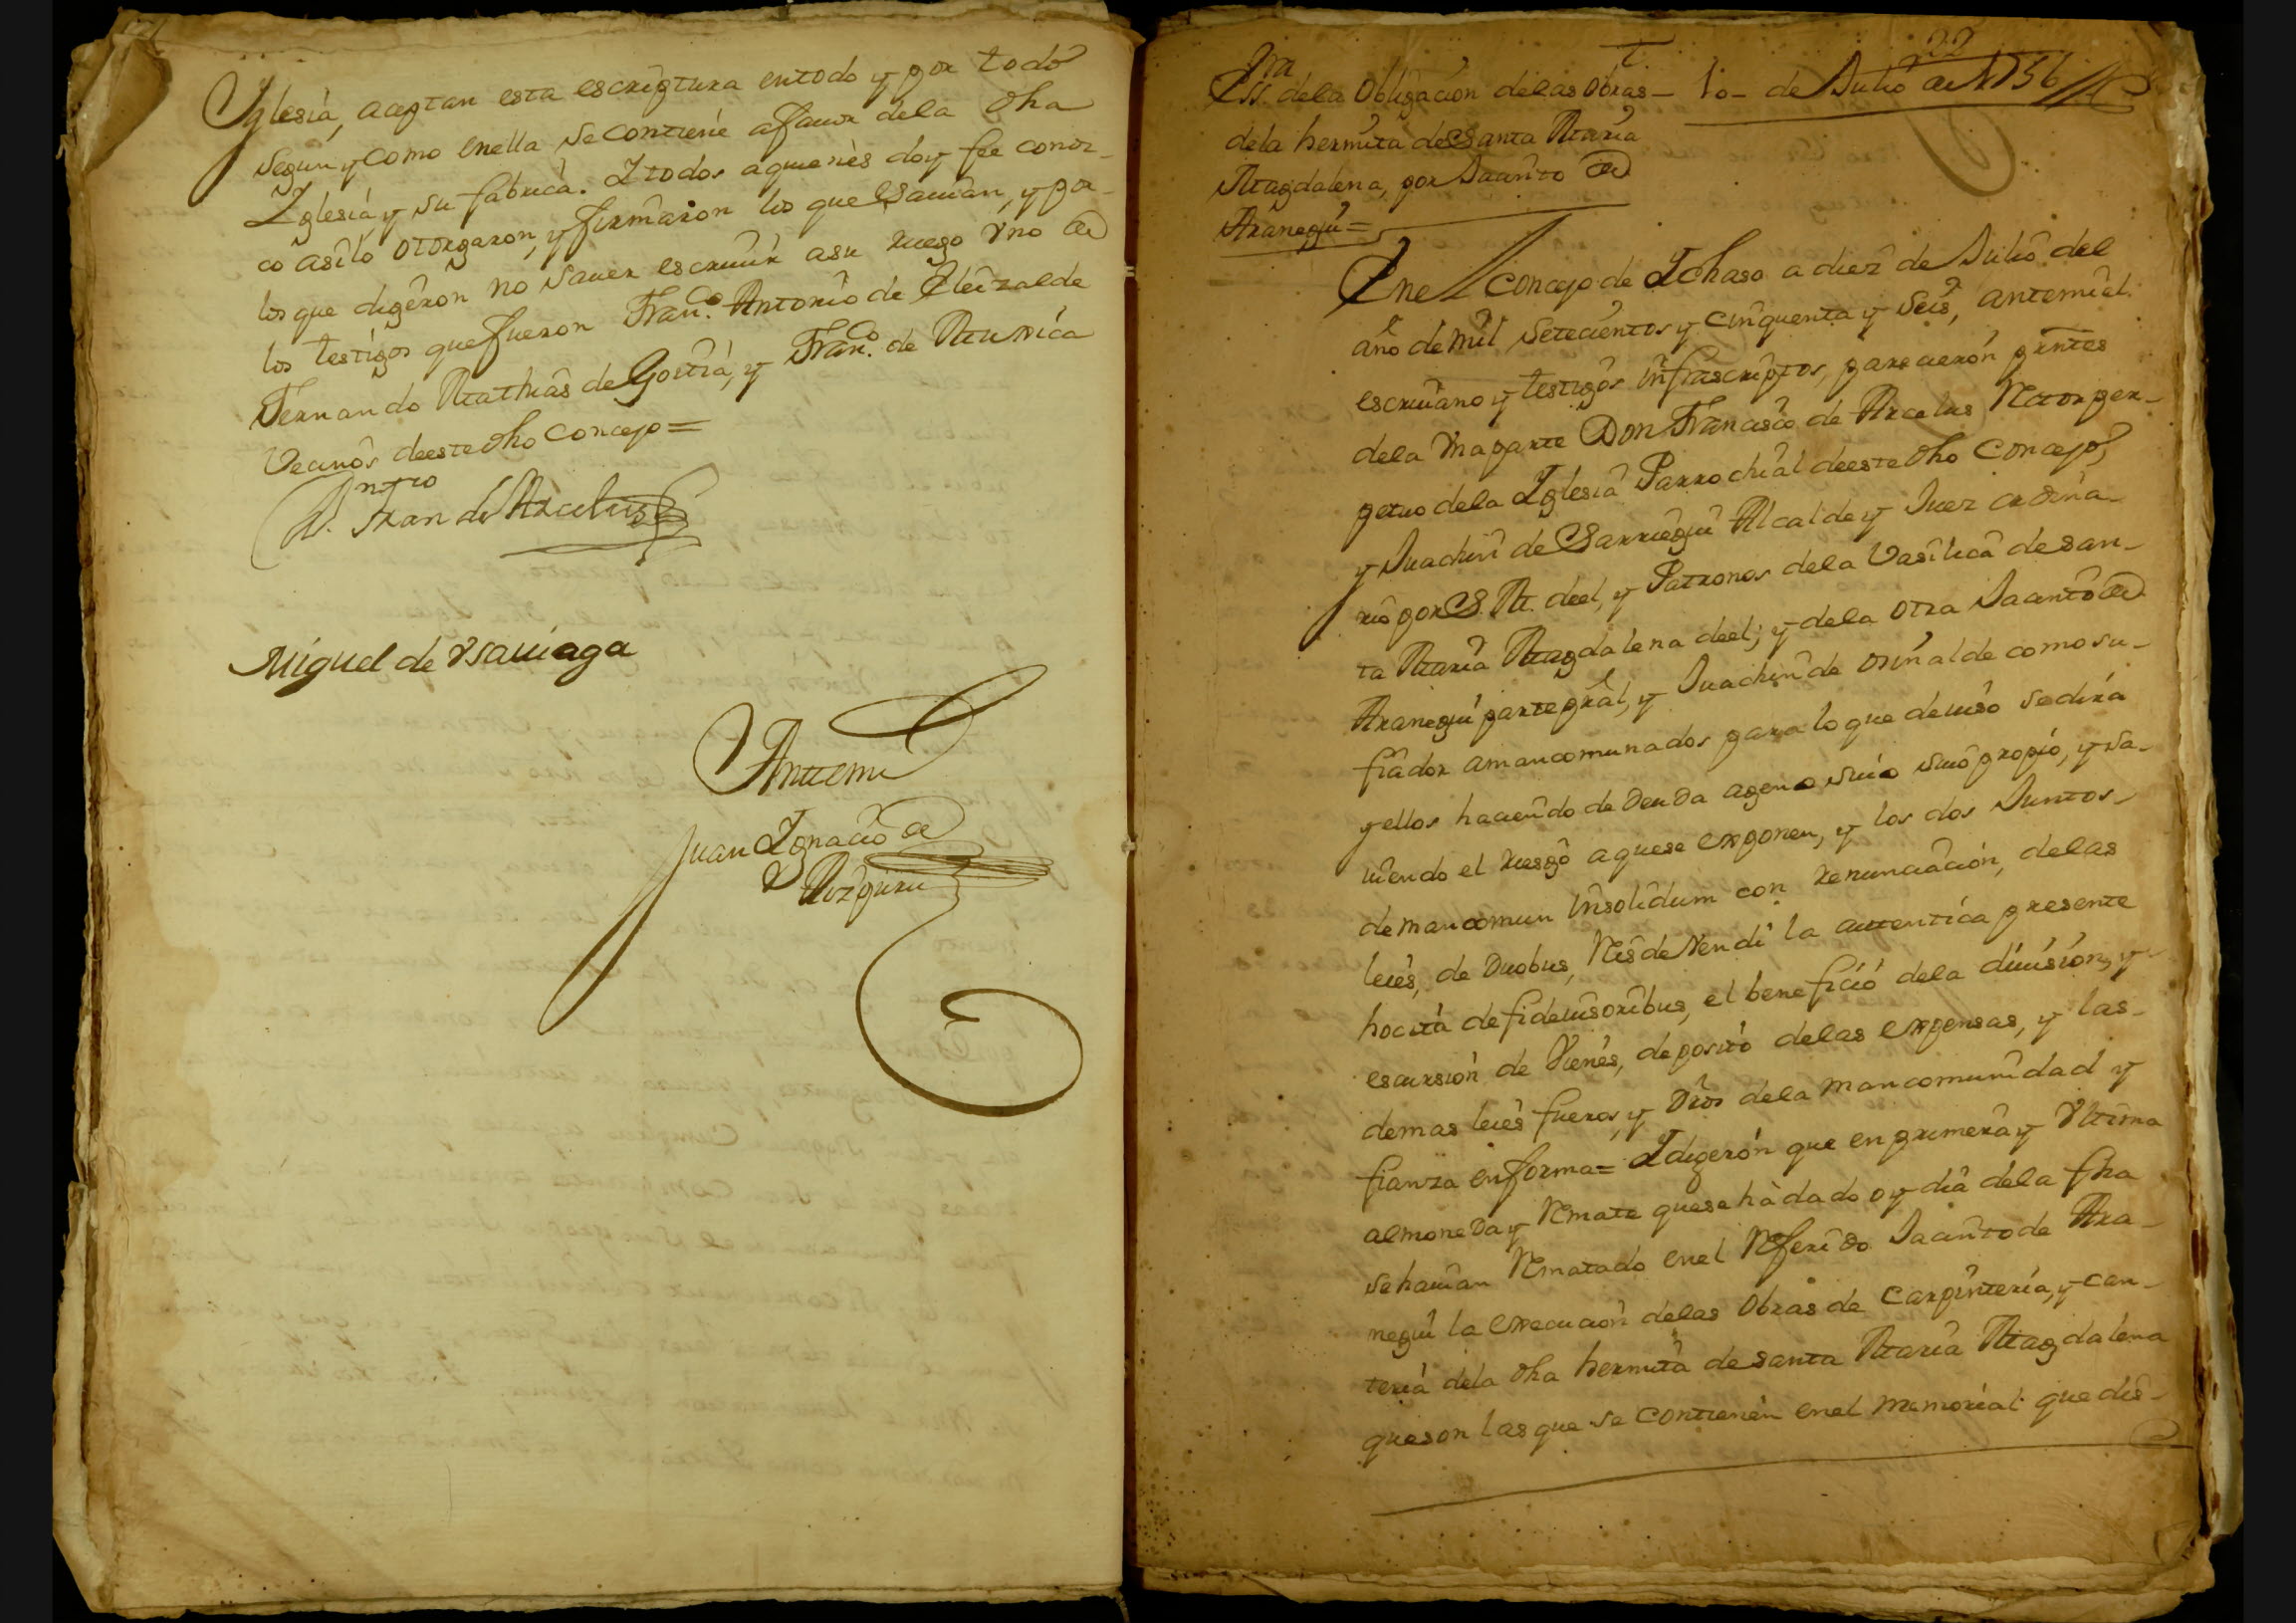 Yglesia, aceptan esta escriptura entodo y por todo
segun y como enella se contiene afauor dela dha
Yglesia y su fabrica. Y todos aquienes doy fee conoz-
co asilo otorgaron, y firmaron los que Sauian, y por
los que digeron no Sauer escriuir asu ruego Vno de
los testigos que fueron Franco. Antonio de Eleizalde
Fernando Mathias de Goitia, y Franco. de Muxica
Vecinos deeste dho Concejo=
D. Fran de Arcelus
Miguel de Vsauiaga
Antemi
Juan Ygnacio de
Aizpuru
22
Essra. dela Obligacion delas Obras- 10- de Julio de 1756
dela hermita de Santa Maria
Magdalena, por Jacinto de
Aranegui=
Enel concejo de Ychaso a diez de Julio del
año de mil Setecientos y cinquenta y Seis, antemi el
escriuano y testigos infrascriptos, parecieron presentes
dela Vna parte Don Francisco de Arcelus Retor per-
petuo dela Yglesia Parrochial deeste dho Concejo,
y Juachin de Sarriegui Alcalde y Juez ordina-
rio por S. M. deel, y Patronos dela Vasilica de san-
ta Maria Magdalena deel; y dela otra Jacinto de
Aranegui parte pral, y Juachin de Oriñalde como su
fiador amancomunados para lo que deiuso se dira
y ellos haciendo de deuda agena suia propio, y sa-
uiendo el riesgo aquese exponen, y los dos Juntos
demancomun insolidum con renunciacion, delas
leies, de Duobus, Reis de Vendi la autentica presente
hocita defideiusoribus, el beneficio dela diuision, y
escursion de Vienes, deposito delas expensas, y las
demas leies fueros, y dros dela mancomunidad y
fianza enforma= Y digeron que en primera y Vltima
almoneda y Remate quese hà dado oy dia dela fha
se hauian Rematado enel Referido Jacinto de Ara-
negui la execucion delas Obras de Carpinteria, y can-
teria dela dha hermita de santa Maria Magdalena
queson las que se contienen enel memorial que dis-